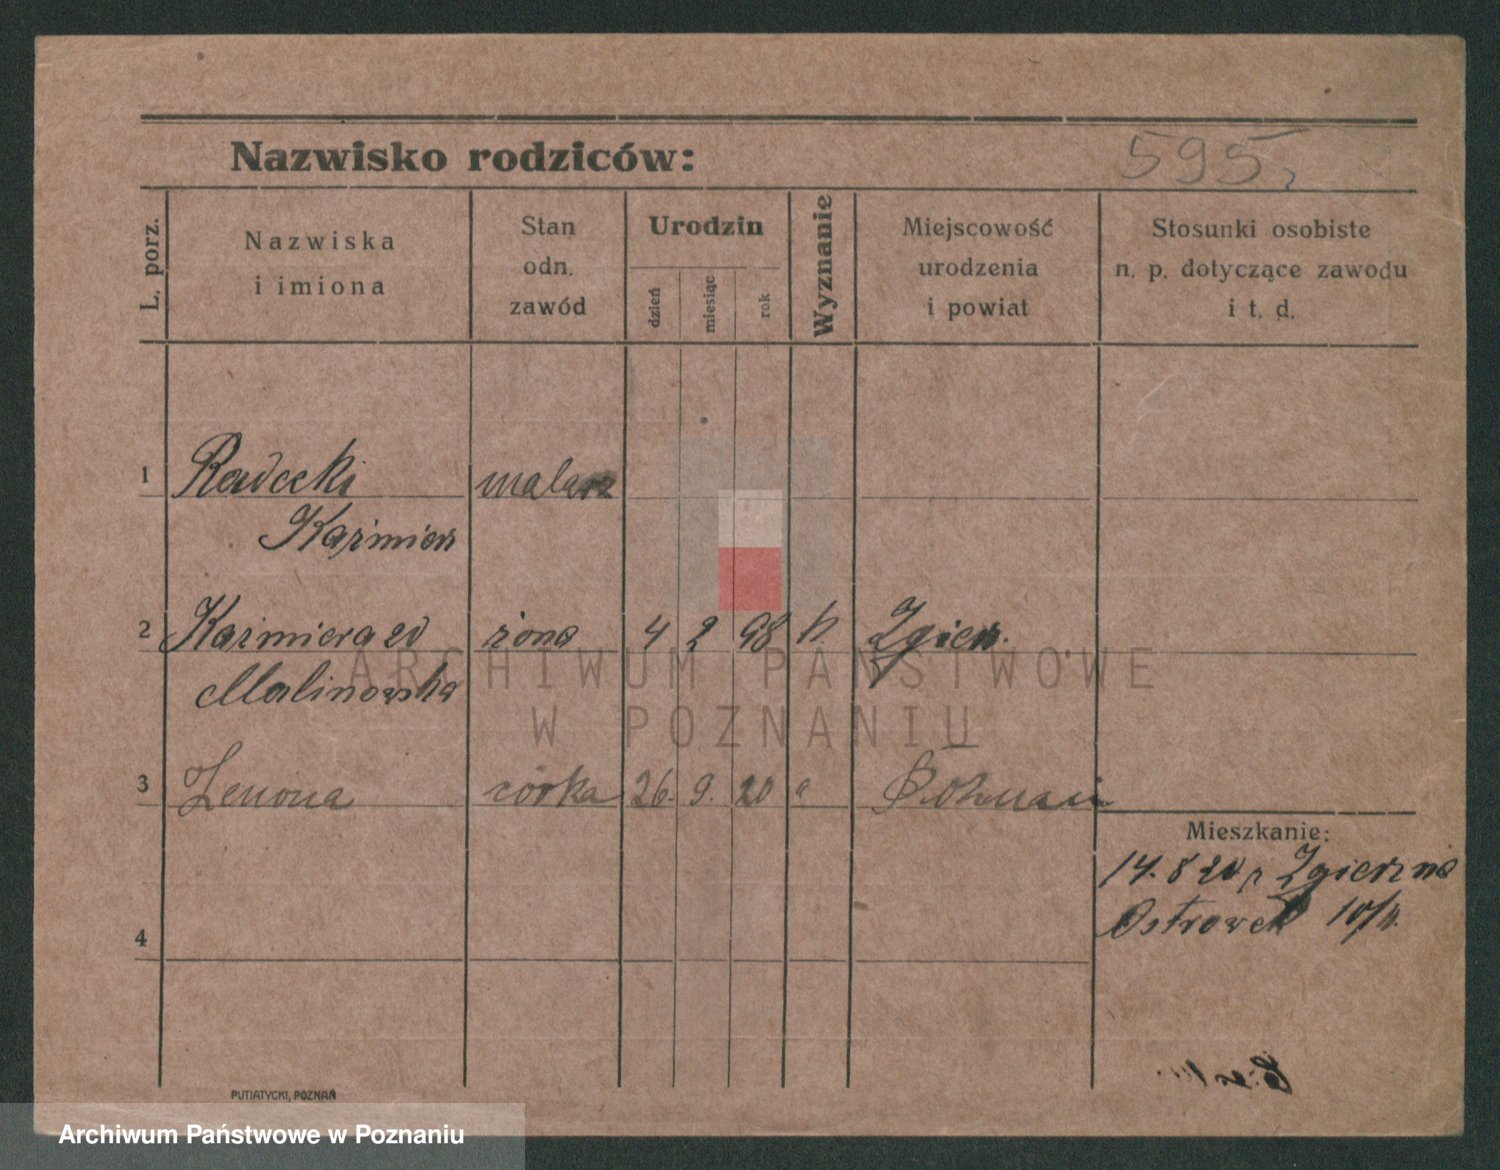 Nazwisko rodziców:
595
L. porz.
Nazwiska
i imiona
Stan
odn.
zawód
Urodzin
dzień
miesiąc
rok
Wyznanie
Miejscowość
urodzenia
i powiat
Stosunki osobiste
n. p. dotyczące zawodu
i t. d.
1 Radecki malarz
Kazimierz
2 Kazimiera żona 4 2 98 Zgierz.
Malinowska
ARCHIWUM PAŃSTWOWE
W POZNANIU
3 Zenona córka 26. 9. 20 " Poznań
Mieszkanie:
14. 8 20 Zgierz na
Ostrówek 10/
4
PUTIATYCKI, POZNAŃ
Archiwum Państwowe w Poznaniu